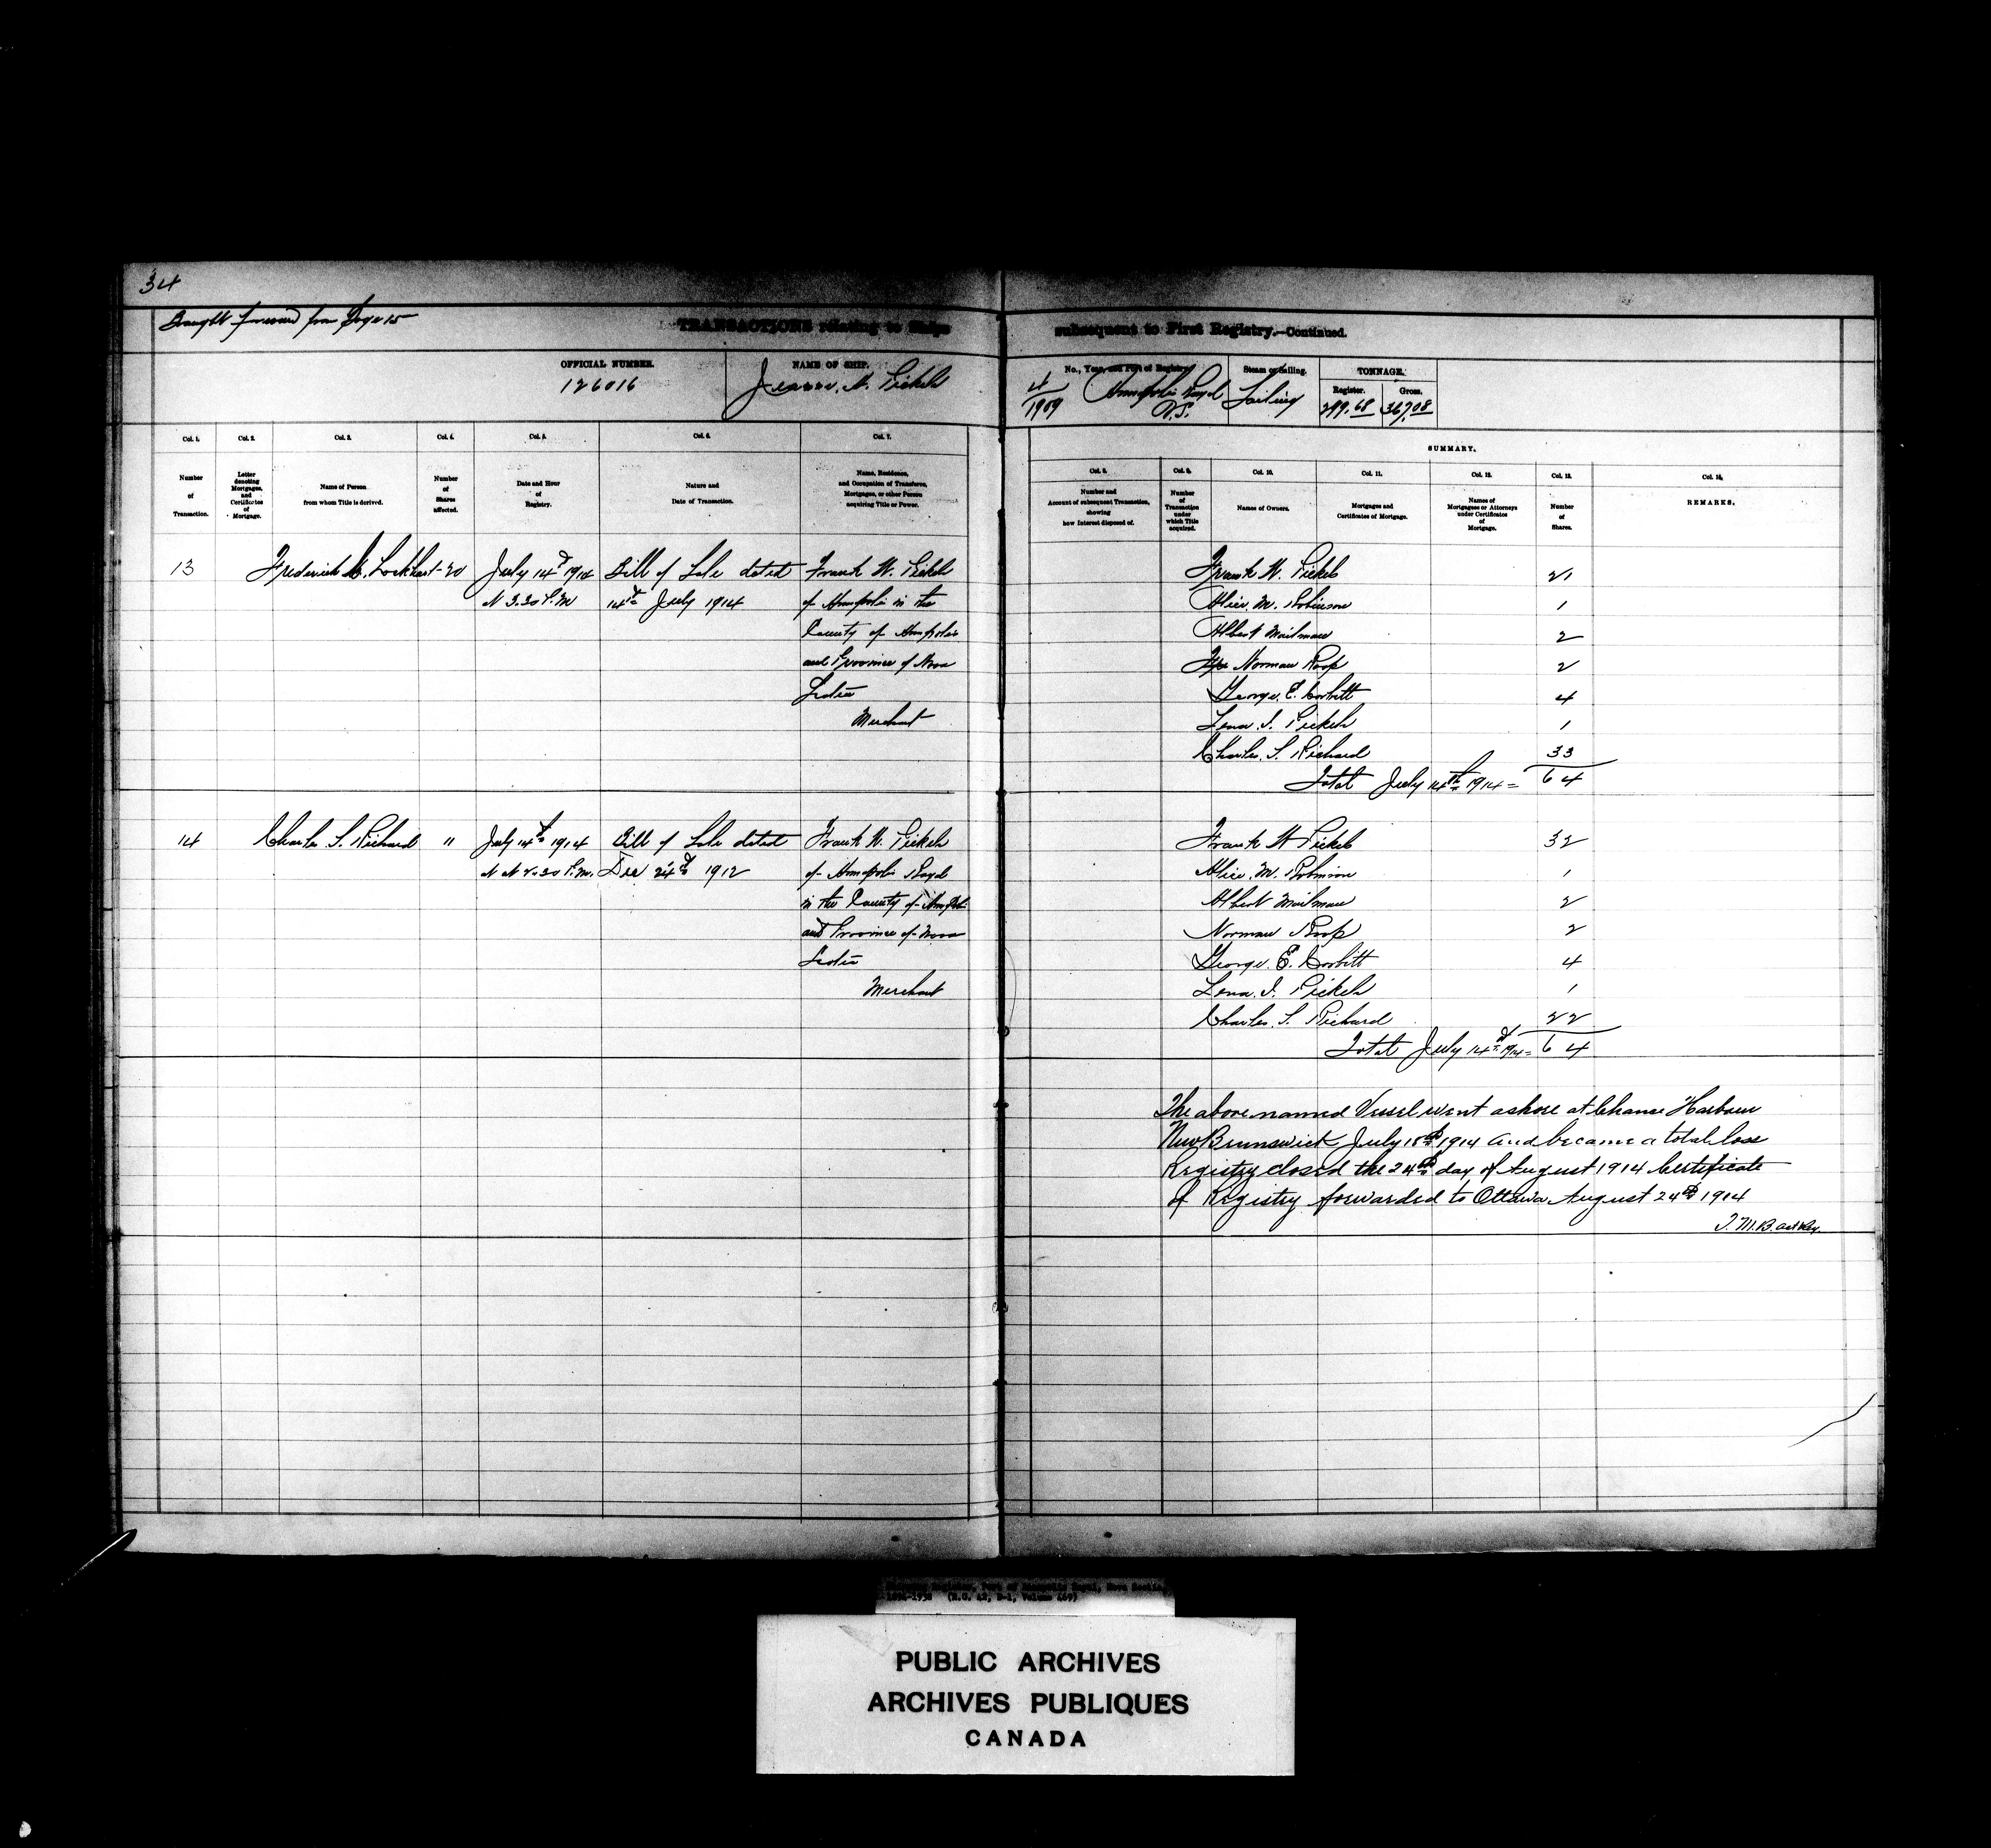 34
Brought forward from Page 15
TRANSACTIONS relating to Ships subsequent to First Registry.—Continued.
OFFICIAL NUMBER.
126016
NAME OF SHIP.
A. Pickels
No., Year, and Port of Registry.
4/1909 Annapolis Royal
N.S.
Steam or Sailing.
Sailing
TONNAGE.
Register. Gross.
299.68 367.08
Col. 1. Col. 2. Col. 3. Col. 4. Col. 5. Col. 6. Col. 7.
Number
of
Transaction.
Letter
denoting
Mortgages,
and
Certificates
of
Mortgage.
Name of Person
from whom Title is derived.
Number
of
Shares
affected.
Date and Hour
of
Registry.
Nature and
Date of Transaction.
Name, Residence,
and Occupation of Transferee,
Mortgagee, or other Person
acquiring Title or Power.
SUMMARY.
Col. 8. Col. 9. Col. 10. Col. 11. Col. 12. Col. 13. Col. 14.
Number and
Account of subsequent Transaction,
showing
how Interest disposed of.
Number
of
Transaction
under
which Title
acquired.
Names of Owners.
Mortgages and
Certificates of Mortgage.
Names of
Mortgagees or Attorneys
under Certificates
of
Mortgage.
Number
of
Shares.
REMARKS.
13 Frederick Lockhart 20 July 14th 1914 Bill of Sale dated Frank W. Pickels
3.30 P.M 14th July 1914 of Annapolis in the
County of Annapolis
and Province of Nova
Scotia
Merchant
Frank W. Pickels 21
Alice. M. Robinson 1
Albert Mailman 2
Norman Roop 2
George. E. Corbitt 4
Lena. I. Pickels 1
Charles. S. Richard 33
Total July 14th 1914 = 64
14 Charles S. Richard " July 14th 1914 Bill of Sale dated Frank W. Pickels
P.M. Dec 24th 1912 of Annapolis Royal
in the County of Annapolis
and Province of Nova
Scotia
Merchant
Frank W Pickels 32
Alice. M. Robinson 1
Albert Mailman 2
Norman Roop 2
George. E. Corbitt 4
Lena. I. Pickels 1
Charles. S. Richard 22
Total July 14th 1914 = 64
The above named Vessel went ashore at Chance Harbour
New Brunswick July 18th 1914 and became a total loss
Registry closed the 24th day of August 1914 Certificate
of Registry forwarded to Ottawa August 24th 1914
Register, Port of Annapolis Royal, Nova Scotia
(R.G. 42, Volume
PUBLIC ARCHIVES
ARCHIVES PUBLIQUES
CANADA